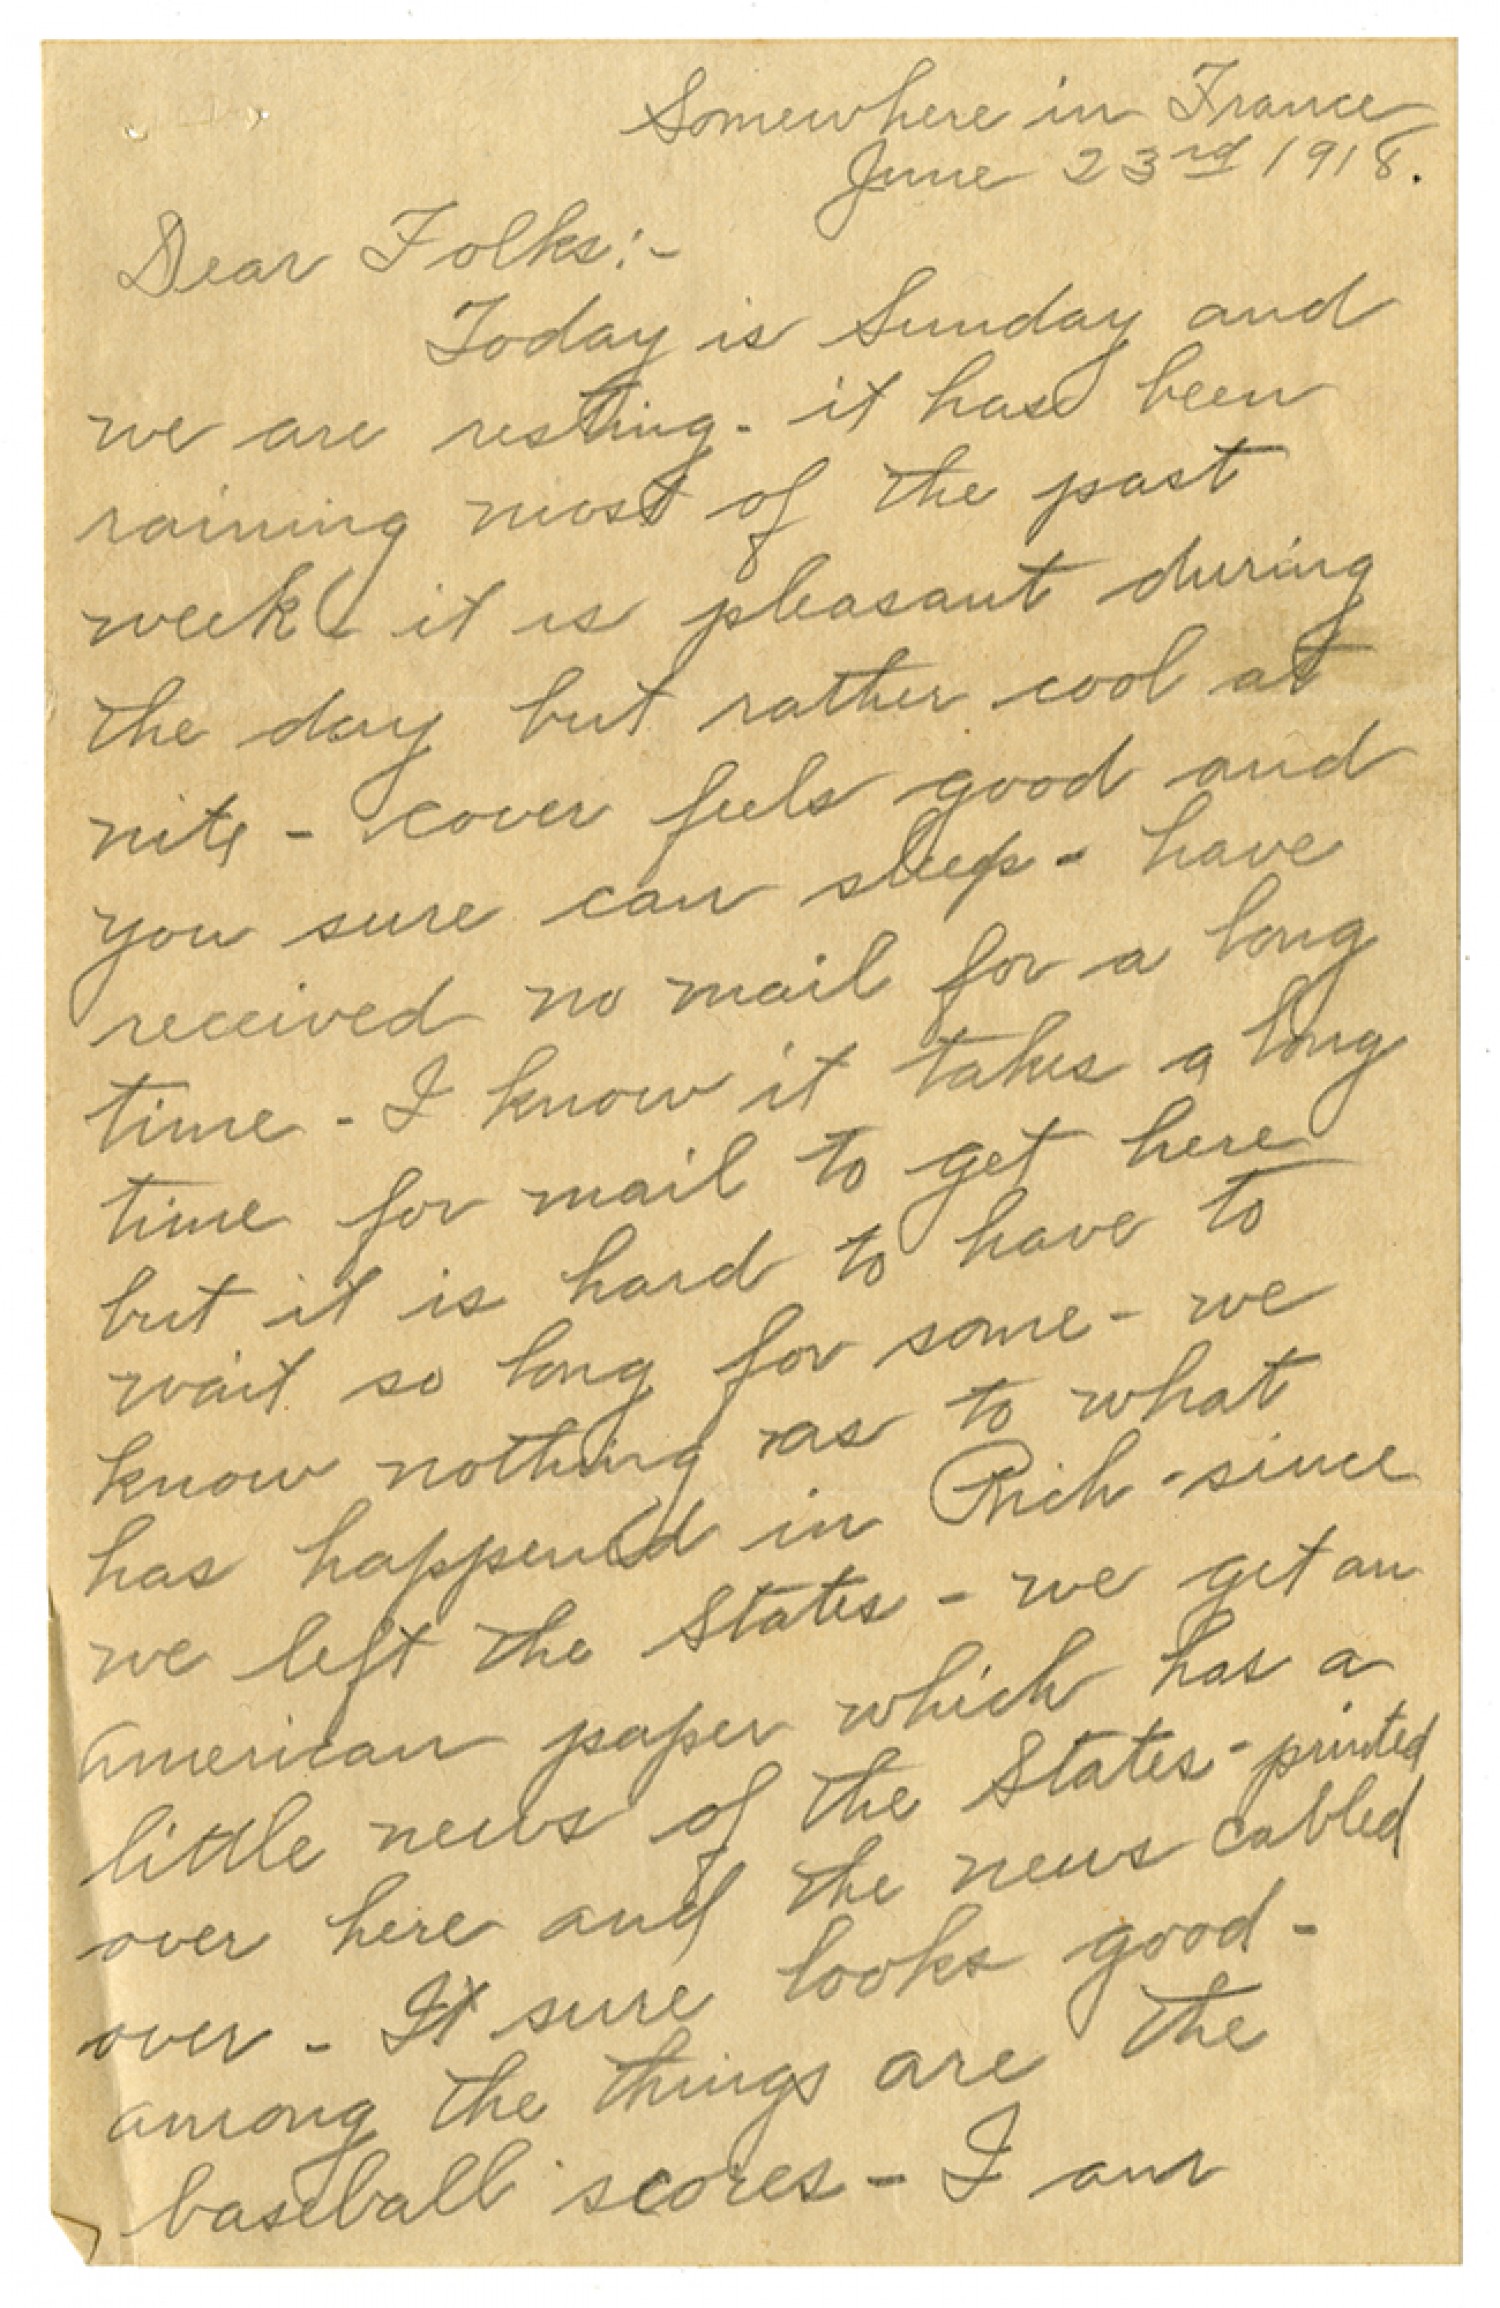 Somewhere in France
June 23rd 1918.
Dear Folks:-
Today is Sunday and
we are resting - it has been
raining most of the past
week it is pleasant during
the day but rather cool at
nite - cover feels good and
you sure can sleep - have
received no mail for a long
time - I know it takes a long
time for mail to get here
but it is hard to have to
wait so long for some - we
know nothing as to what
has happened in Rich - since
we left the States - we get an
American paper which has a
little news of the States - printed
over here and the news cabled
over - It sure looks good -
among the things are the
baseball scores - I am